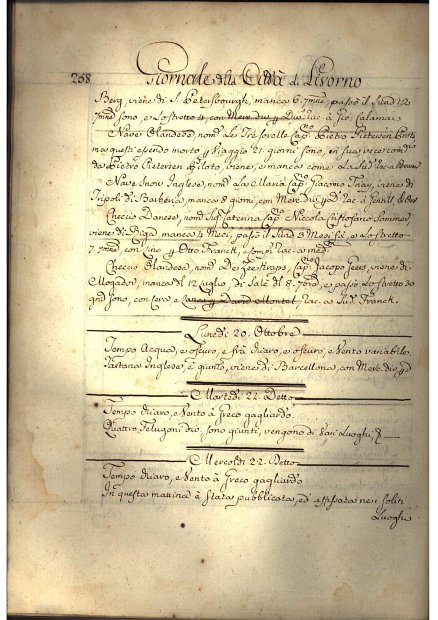 258. Giornale della Città di Livorno
Berg, viene di S. Petersbourgh, manca 6: 7mne, passò il Sund
7mne sono, e lo stretto 4, con Merc. div. p Dto. Rac. a Gio: Calamai
Nave Olandese, nomta. Le Trè Sorelle Capno. Pietro Pietersen
ma questi essendo morto p Viaggio 21. giorni sono, in sua vece
da Pietro Pietersen Piloto, viene, e manca come La Sudta.
Nave Snow Inglese, nomta. La Maria Capno. Giacomo, viene di
Tripoli di Barberia, manca 8 giorni, con Merc. div. p Rac. a
Checcia Danese, nomta. Sta. Caterina Capno. Niccola
viene di Riga manca 4 Mesi, passò il Sund 3 Mesi fà, e lo Stretto
7. 7mne, con Lino p Otto Franck, e Comp. Rac. a med.
Checcia Olandese, nomta. Capno. Jacopo, viene di
Mogador, manca di 12 Luglio, di Salè dl 8. 7bre, e passò lo stretto
gni sono, con Cera, e Lana p David Montel, Rac. a Franck.
Lunedì 20. Ottobre
Tempo Acqua, e oscuro, e frà chiaro, e oscuro, e Vento variabile.
Tartana Inglese, è giunta, viene di Barcellona, con Merc. div. p
Martedì 21. Detto
Tempo chiaro, e Vento à Greco gagliardo.
Quattro Felugoni div. sono giunti, vengono di Vari Luoghi,
Mercoldì 22. Detto
Tempo chiaro, e Vento à Greco gagliardo
In questa mattina è stata pubblicata, ed affissata nei soliti
Luoghi